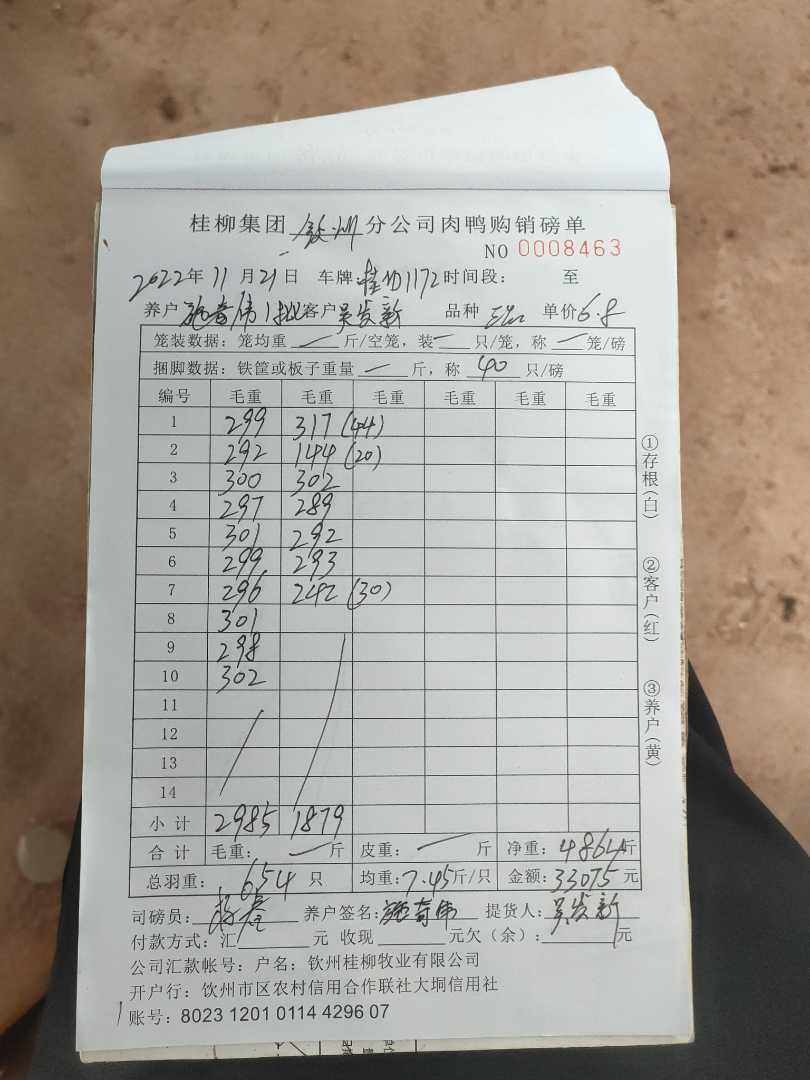 桂柳集团 钦州 分公司肉鸭购销磅单
NO 0008463
2022年 11月 21日 车牌:桂 1172 时间段: 至
养户 施奇伟 1批 客户 吴发新 品种 单价 6.8
笼装数据:笼均重 — 斤/空笼,装 — 只/笼,称 — 笼/磅
捆脚数据:铁筐或板子重量 — 斤,称 40 只/磅
编号 毛重 毛重 毛重 毛重 毛重 毛重
1 299 317 (44)
2 292 144 (20)
3 300 302
4 297 289
5 301 292
6 299 293
7 296 242 (30)
8 301
9 298
10 302
11
12
13
14
小计 2985 1879
合计 毛重: — 斤 皮重: — 斤 净重: 4864斤
总羽重: 654 只 均重: 7.45斤/只 金额: 33075元
司磅员: 养户签名: 施奇伟 提货人: 吴发新
付款方式:汇 元 收现 元欠(余): 元
公司汇款帐号:户名:钦州桂柳牧业有限公司
开户行:钦州市区农村信用合作联社大垌信用社
账号:8023 1201 0114 4296 07
①存根(白)
②客户(红)
③养户(黄)